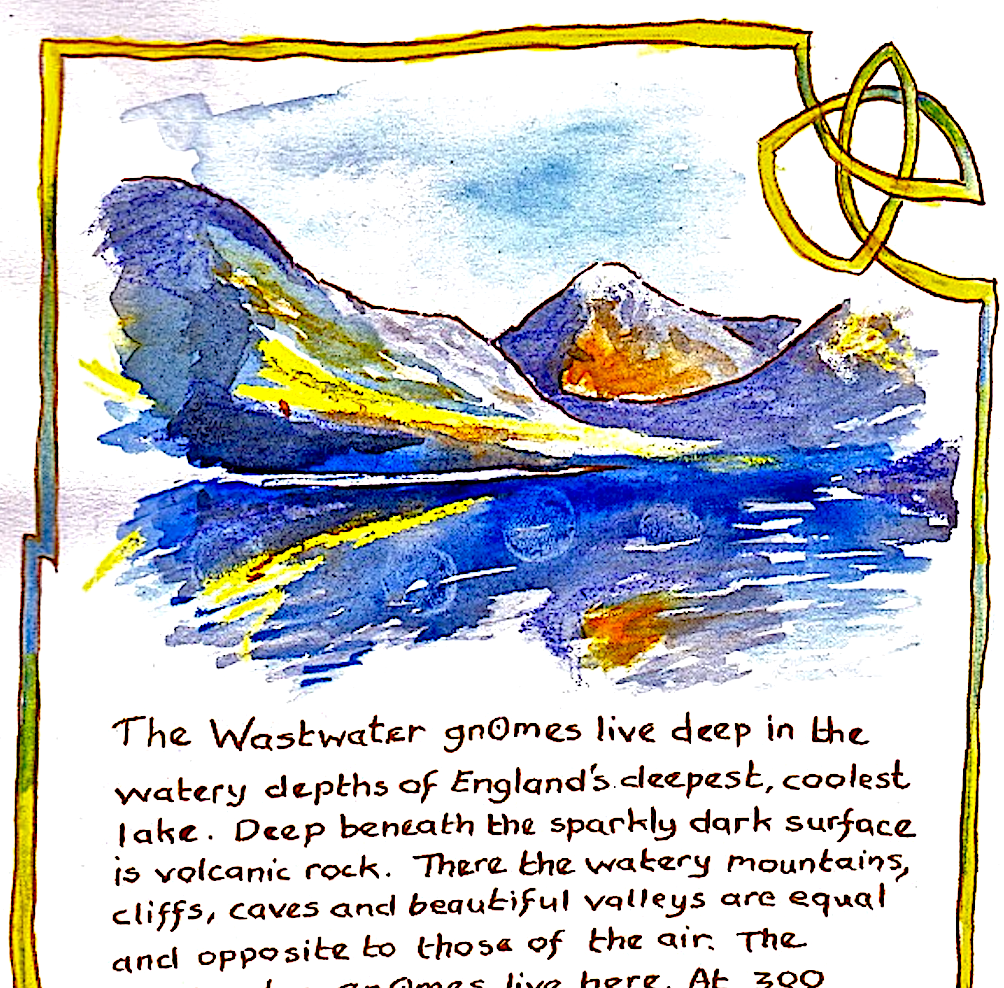 The Wastwater gnOmes live deep in the
watery depths of England's deepest, coolest
lake. Deep beneath the sparkly dark surface
is volcanic rock. There the watery mountains,
cliffs, caves and beautiful valleys are equal
and opposite to those of the air. The
gnOmes live here. At 300